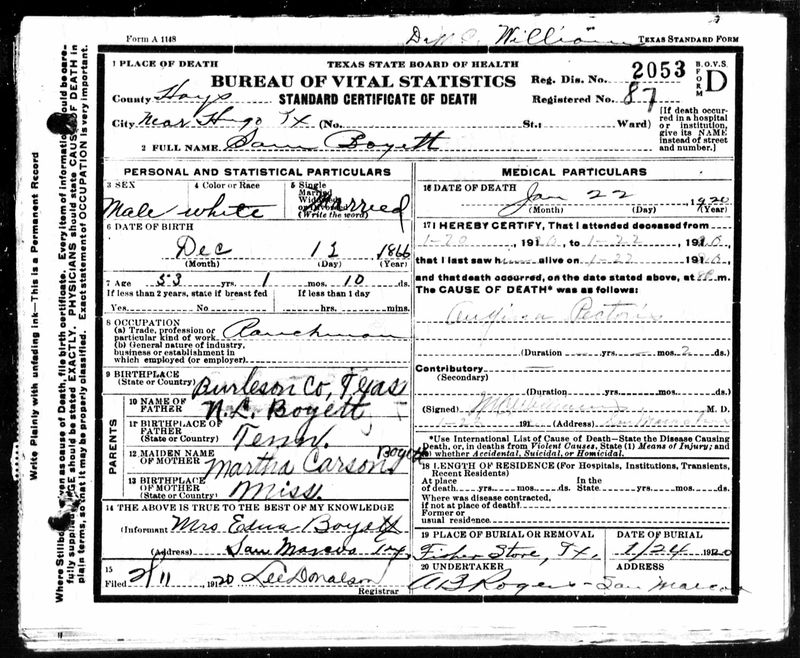 Form A 1148 Williams TEXAS STANDARD FORM
1 PLACE OF DEATH
TEXAS STATE BOARD OF HEALTH
BUREAU OF VITAL STATISTICS
STANDARD CERTIFICATE OF DEATH
Reg. Dis. No. 2053
Registered No. 87
B.O.V.S. FORM D
County Hays
City Near Hugo Tx (No. St.; Ward)
[If death occurred in a hospital or institution, give its NAME instead of street and number.]
2 FULL NAME Sam Boyett
PERSONAL AND STATISTICAL PARTICULARS
3 SEX Male
4 Color or Race white
5 Single Married Widowed or Divorced (Write the word) Married
6 DATE OF BIRTH
Dec 12 1866
(Month) (Day) (Year)
7 Age 53 yrs. 1 mos. 10 ds.
If less than 2 years, state if breast fed If less than 1 day
Yes No hrs. mins.
8 OCCUPATION
(a) Trade, profession or particular kind of work Ranchman
(b) General nature of industry, business or establishment in which employed (or employer)
9 BIRTHPLACE (State or Country) Burleson Co, Texas
PARENTS
10 NAME OF FATHER N.L. Boyett
11 BIRTHPLACE OF FATHER (State or County) Tenn.
12 MAIDEN NAME OF MOTHER Martha Carson Boyett
13 BIRTHPLACE OF MOTHER (State or County) Miss.
14 THE ABOVE IS TRUE TO THE BEST OF MY KNOWLEDGE
(Informant Mrs. Edna Boyett
(Address) San Marcos Tex,
15 Filed 2/11 1920 Lee Donalson
Registrar
MEDICAL PARTICULARS
16 DATE OF DEATH
Jan 22 1920
(Month) (Day) (Year)
17 I HEREBY CERTIFY, That I attended deceased from
1-20, 1920, to 1-22, 1920,
that I last saw h alive on 1-22 1920,
and that death occurred, on the date stated above, at 8P m.
The CAUSE OF DEATH* was as follows:
Angina Pectoris
(Duration yrs. mos. 2 ds.)
Contributory
(Secondary)
(Duration yrs. mos. ds.)
(Signed) M. D.
191 (Address)
*Use International List of Cause of Death—State the Disease Causing Death, or, in deaths from Violent Causes, State (1) Means of Injury; and (2) whether Accidental, Suicidal, or Homicidal.
18 LENGTH OF RESIDENCE (For Hospitals, Institutions, Transients, Recent Residents)
At place of death yrs. mos. ds. In the State yrs. mos. ds.
Where was disease contracted, if not at place of death?
Former or usual residence
19 PLACE OF BURIAL OR REMOVAL DATE OF BURIAL
Fisher Store, Tx, 1/24 1920
20 UNDERTAKER ADDRESS
A B Rogers - San Marcos
Write Plainly with unfading ink—This is a Permanent Record